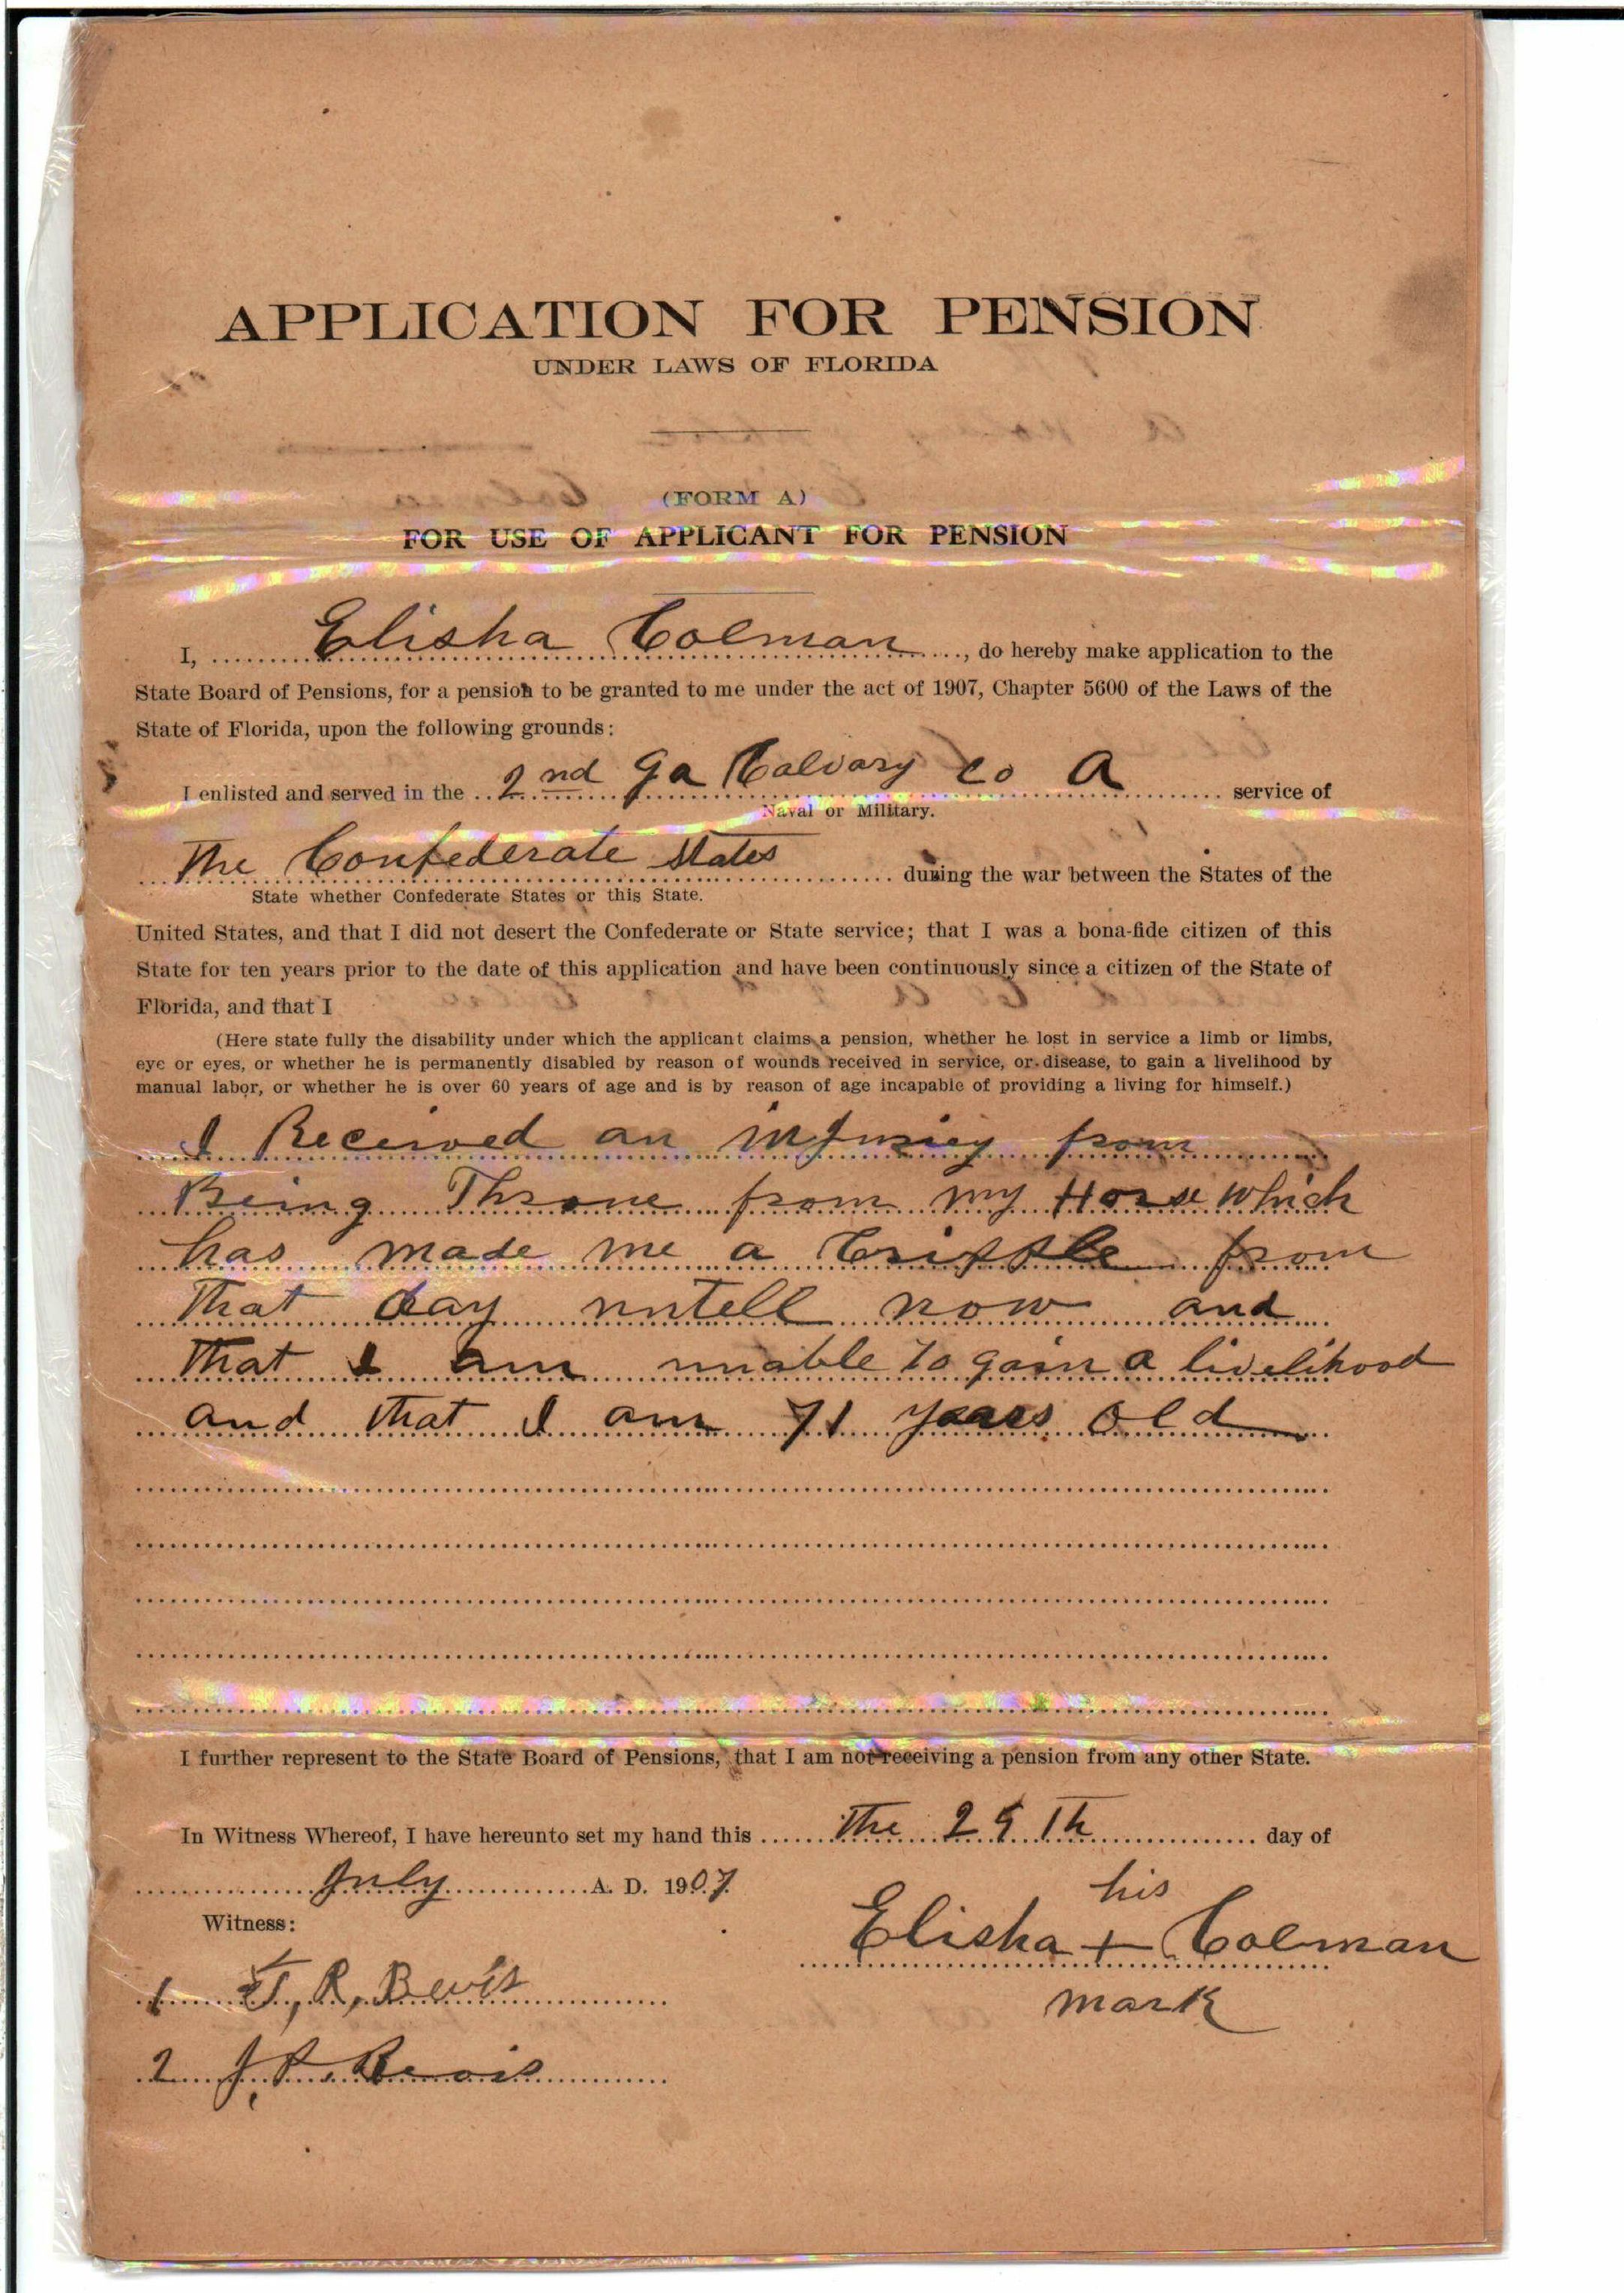 APPLICATION FOR PENSION
UNDER LAWS OF FLORIDA
(FORM A)
FOR USE OF APPLICANT FOR PENSION
I, Elisha Colman, do hereby make application to the
State Board of Pensions, for a pension to be granted to me under the act of 1907, Chapter 5600 of the Laws of the
State of Florida, upon the following grounds:
I enlisted and served in the 2nd Ga Calvary Co A service of
Naval or Military.
The Confederate States during the war between the States of the
State whether Confederate States or this State.
United States, and that I did not desert the Confederate or State service; that I was a bona-fide citizen of this
State for ten years prior to the date of this application and have been continuously since a citizen of the State of
Florida, and that I
(Here state fully the disability under which the applicant claims a pension, whether he lost in service a limb or limbs,
eye or eyes, or whether he is permanently disabled by reason of wounds received in service, or disease, to gain a livelihood by
manual labor, or whether he is over 60 years of age and is by reason of age incapable of providing a living for himself.)
I Received an from
Being Throne from my Horse which
has made me a Cripple from
That day untell now and
that I am unable to gain a livelihood
and that I am 71 years old
I further represent to the State Board of Pensions, that I am not receiving a pension from any other State.
In Witness Whereof, I have hereunto set my hand this The Th day of
July A. D. 1907
Witness:
his
Elisha + Colman
mark
1 J, R, Bevis
2 J. P. Bevis